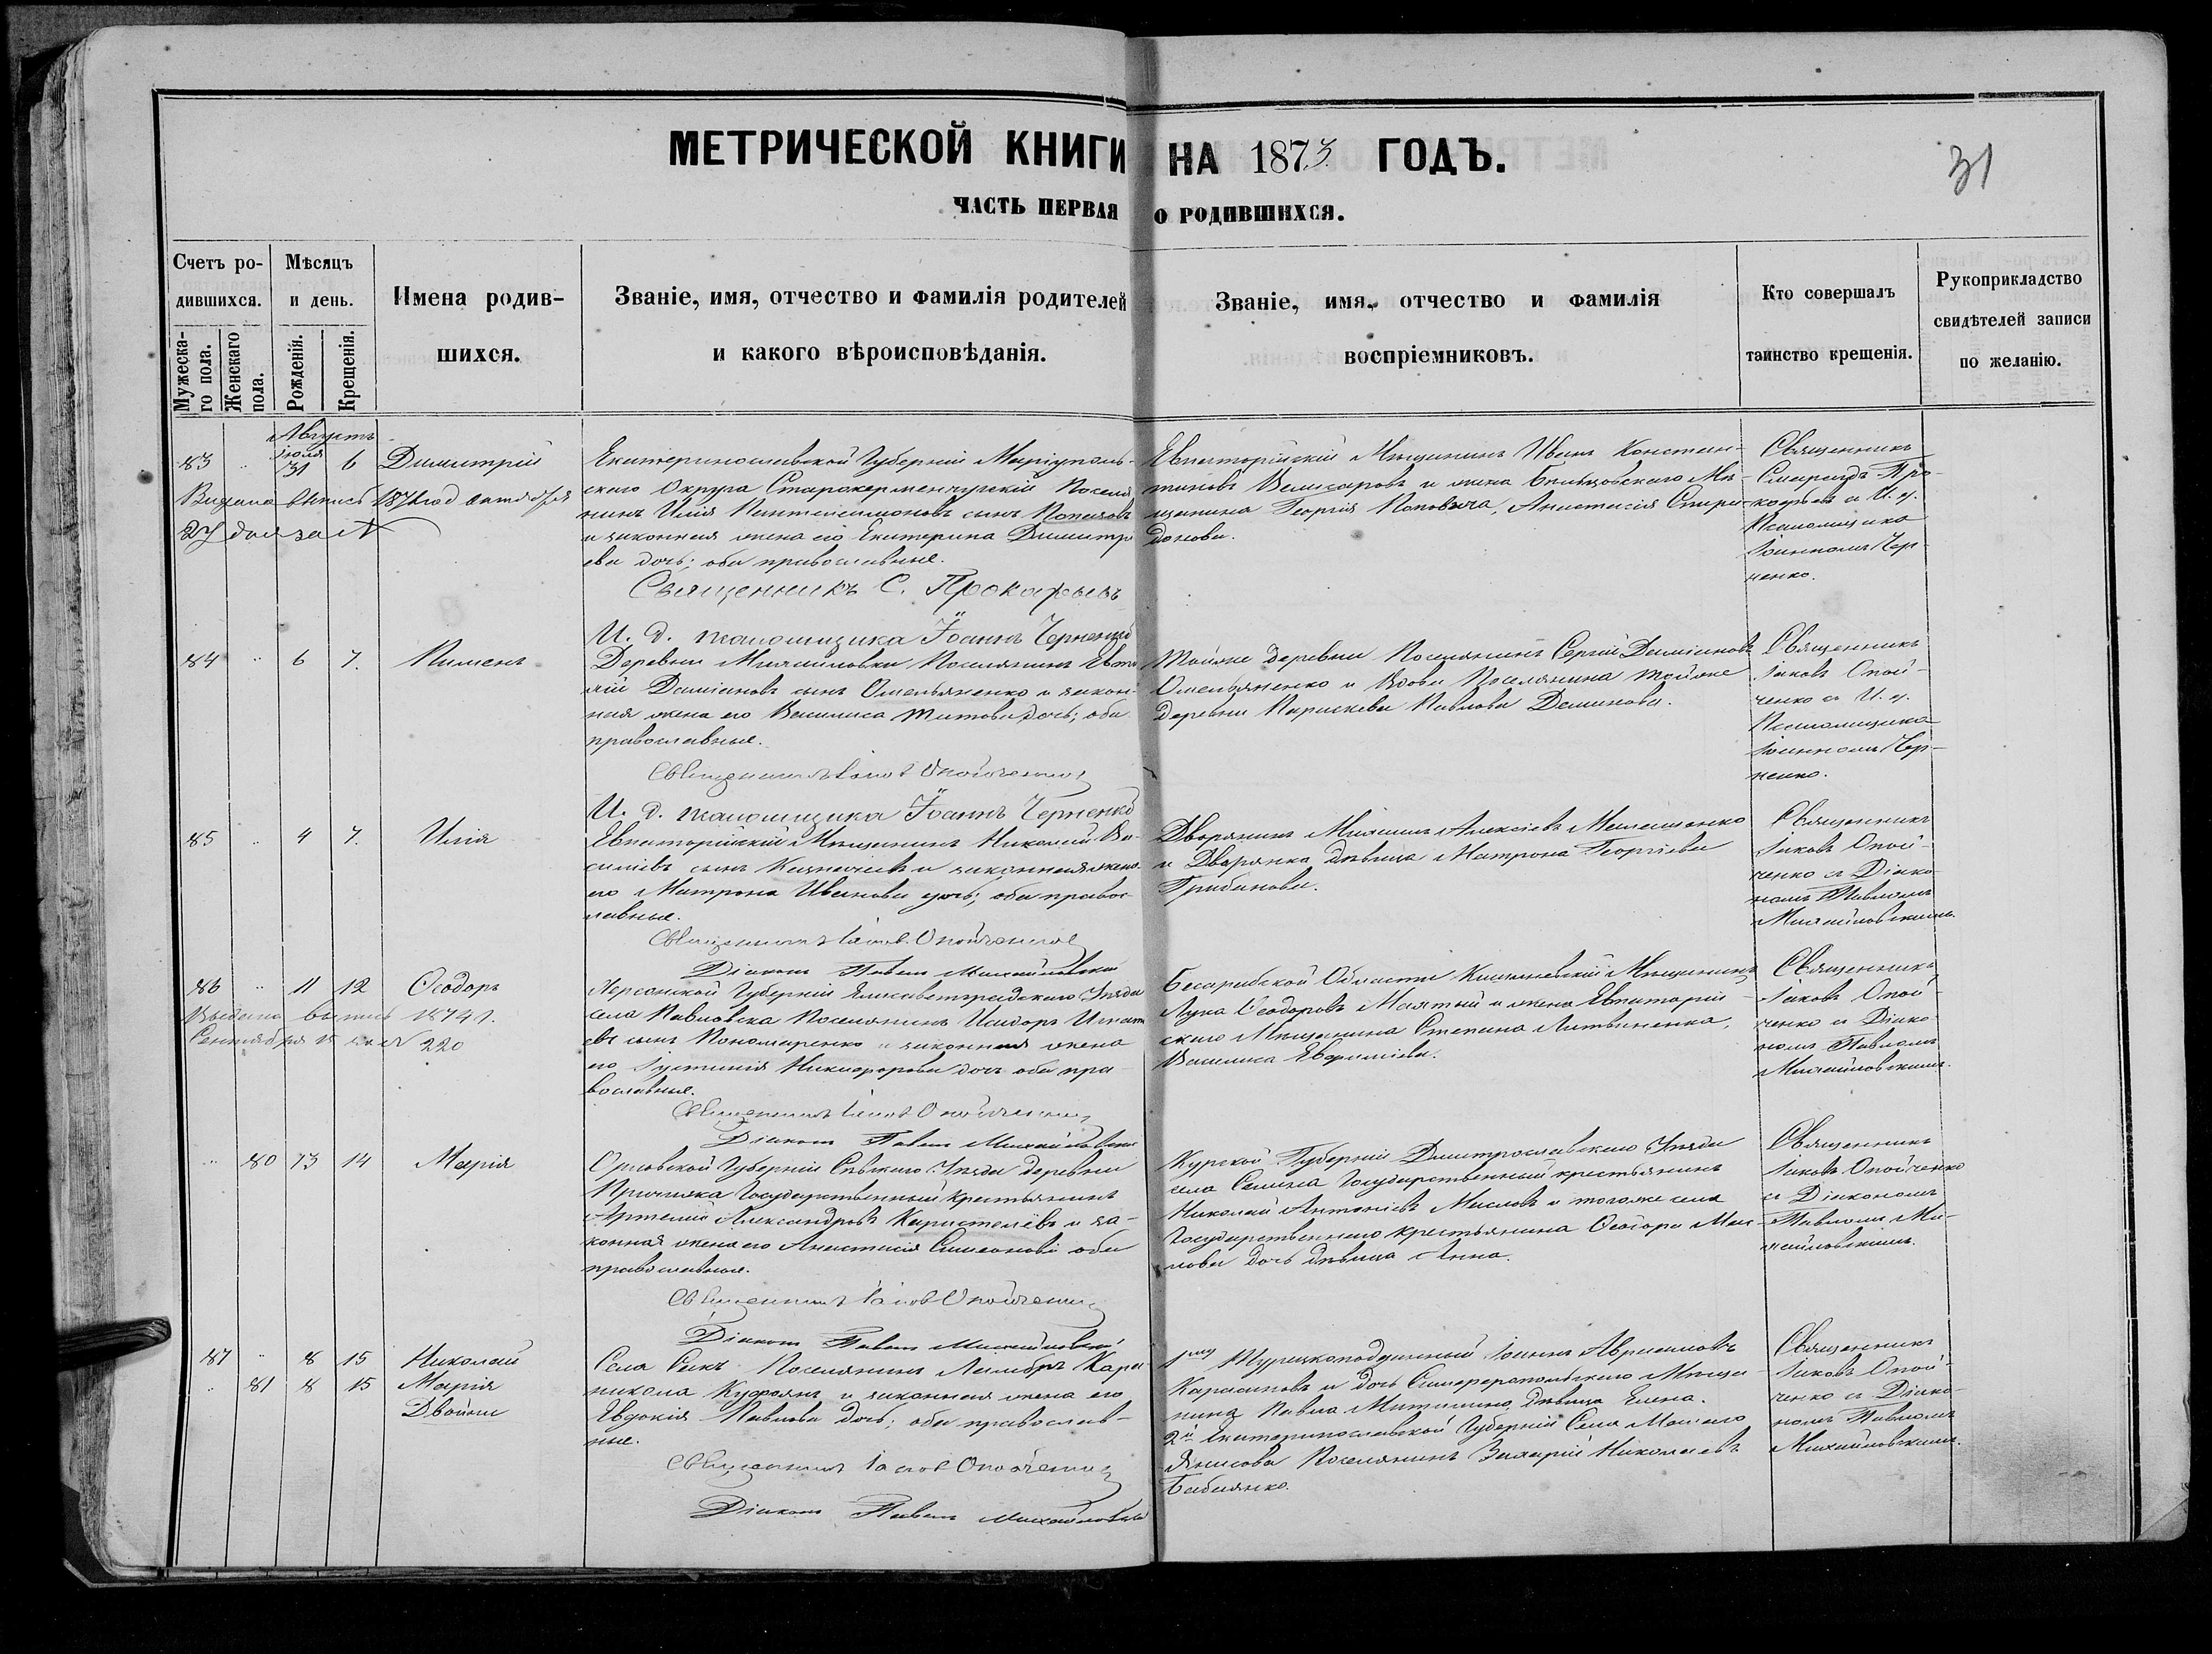 МЕТРИЧЕСКОЙ КНИГИ НА 1873 ГОДЪ.
31
ЧАСТЬ ПЕРВАЯ О РОДИВШИХСЯ.
Счетъ родившихся.
Мужескаго пола.
Женскаго пола.
Мѣсяцъ и день.
Рожденія.
Крещенія.
Имена родившихся.
Званіе, имя, отчество и фамилія родителей
и какого вѣроисповѣданія.
Званіе, имя, отчество и фамилія
воспріемниковъ.
Кто совершалъ
таинство крещенія.
Рукоприкладство
свидѣтелей записи
по желанію.
Августъ
83 " іюля 31 6 Димитрій
Екатеринославской Губерніи Маріуполь-
скаго Округа Старокерменчугскій Поселя
нинъ Илія Пантелеимоновъ сынъ
и законная жена его Екатерина Димитрі
ева дочь; оба православные.
Священникъ С. Прокофьевъ
И. д. псаломщика Іоаннъ Черненко
Евпаторійскій Мѣщанинъ Иванъ Констан-
тиновъ и жена Мѣ-
щанина Георгія Поповича, Анастасія Спири-
донова.
Священникъ
Смарагдъ Про-
кофьевъ съ И. д.
Псаломщика
Іоанномъ Чер-
ненко.
84 " 6 7. Пименъ
Деревни Михайловки Поселянинъ
Даміановъ сынъ Омельяненко и закон-
ная жена его Василиса Титова дочь; оба
православные.
Священникъ Іаковъ Опойченко
И. д. псаломщика Іоаннъ Черненко
Тойже деревни Поселянинъ Сергій Даміановъ
Омельяненко и вдова Поселянина тойже
деревни Параскева Павлова Деминова.
Священникъ
Іаковъ Опой-
ченко съ И. д.
Псаломщика
Іоанномъ Чер-
ненко.
85 " 4 7. Илія
Евпаторійскій Мѣщанинъ Николай Ва-
силіевъ сынъ Казначѣевъ и законная жена
его Матрона Иванова дочь; оба правос
лавные.
Священникъ Іаковъ Опойченко
Діаконъ Павелъ Михайловскій
Дворянинъ Алексіевъ
и Дворянка дѣвица Матрона Георгіева
Грибанова.
Священникъ
Іаковъ Опой-
ченко съ Діако-
номъ Павломъ
Михайловскимъ.
86 " 11 12 Ѳеодоръ
Херсонской Губерніи Елисаветградскаго Уѣзда
села Павловка Поселянинъ Исидоръ Игнаті
евъ сынъ Пономаренко и законная жена
его Іустинія Никифорова дочь оба пра
вославные.
Священникъ Іаковъ Опойченко
Діаконъ Павелъ Михайловскій
Бесарабской Области Кишиневскій Мѣщанинъ
Лука Ѳеодоровъ и жена Евпаторій-
скаго Мѣщанина Степана Литвиненка,
Василиса Евфиміева.
Священникъ
Іаковъ Опой-
ченко съ Діако-
номъ Павломъ
Михайловскимъ.
" 80 13 14 Марія
Орловской Губерніи Сѣвскаго Уѣзда деревни
Государственный крестьянинъ
Артемій Александровъ Каристелёвъ и за-
конная жена его Анастасія Симеонова оба
православные.
Священникъ Іаковъ Опойченко
Діаконъ Павелъ Михайловскій
Курской Губерніи Дмитрославскаго Уѣзда
села Селина Государственный крестьянинъ
Николай Антоніевъ Масловъ и тогоже села
Государственнаго крестьянина Ѳеодора Мас-
лова дочь дѣвица Анна.
Священникъ
Іаковъ Опойченко
съ Діакономъ
Павломъ Ми-
хайловскимъ.
87 " 8 15 Николай
" 81 8 15 Марія
Двойни
Села Поселянинъ
и законная жена его
Евдокія Павлова дочь; оба православ-
ные.
Священникъ Іаковъ Опойченко
Діаконъ Павелъ Михайловскій
Турецкоподданный Іоаннъ Авраамовъ
и дочь Симферопольскаго Мѣща-
нина Павла дѣвица Елена.
2й Екатеринославской Губерніи Села Малаго
Янисова Поселянинъ Захарій Николаевъ
Священникъ
Іаковъ Опой-
ченко съ Діако-
номъ Павломъ
Михайловскимъ.